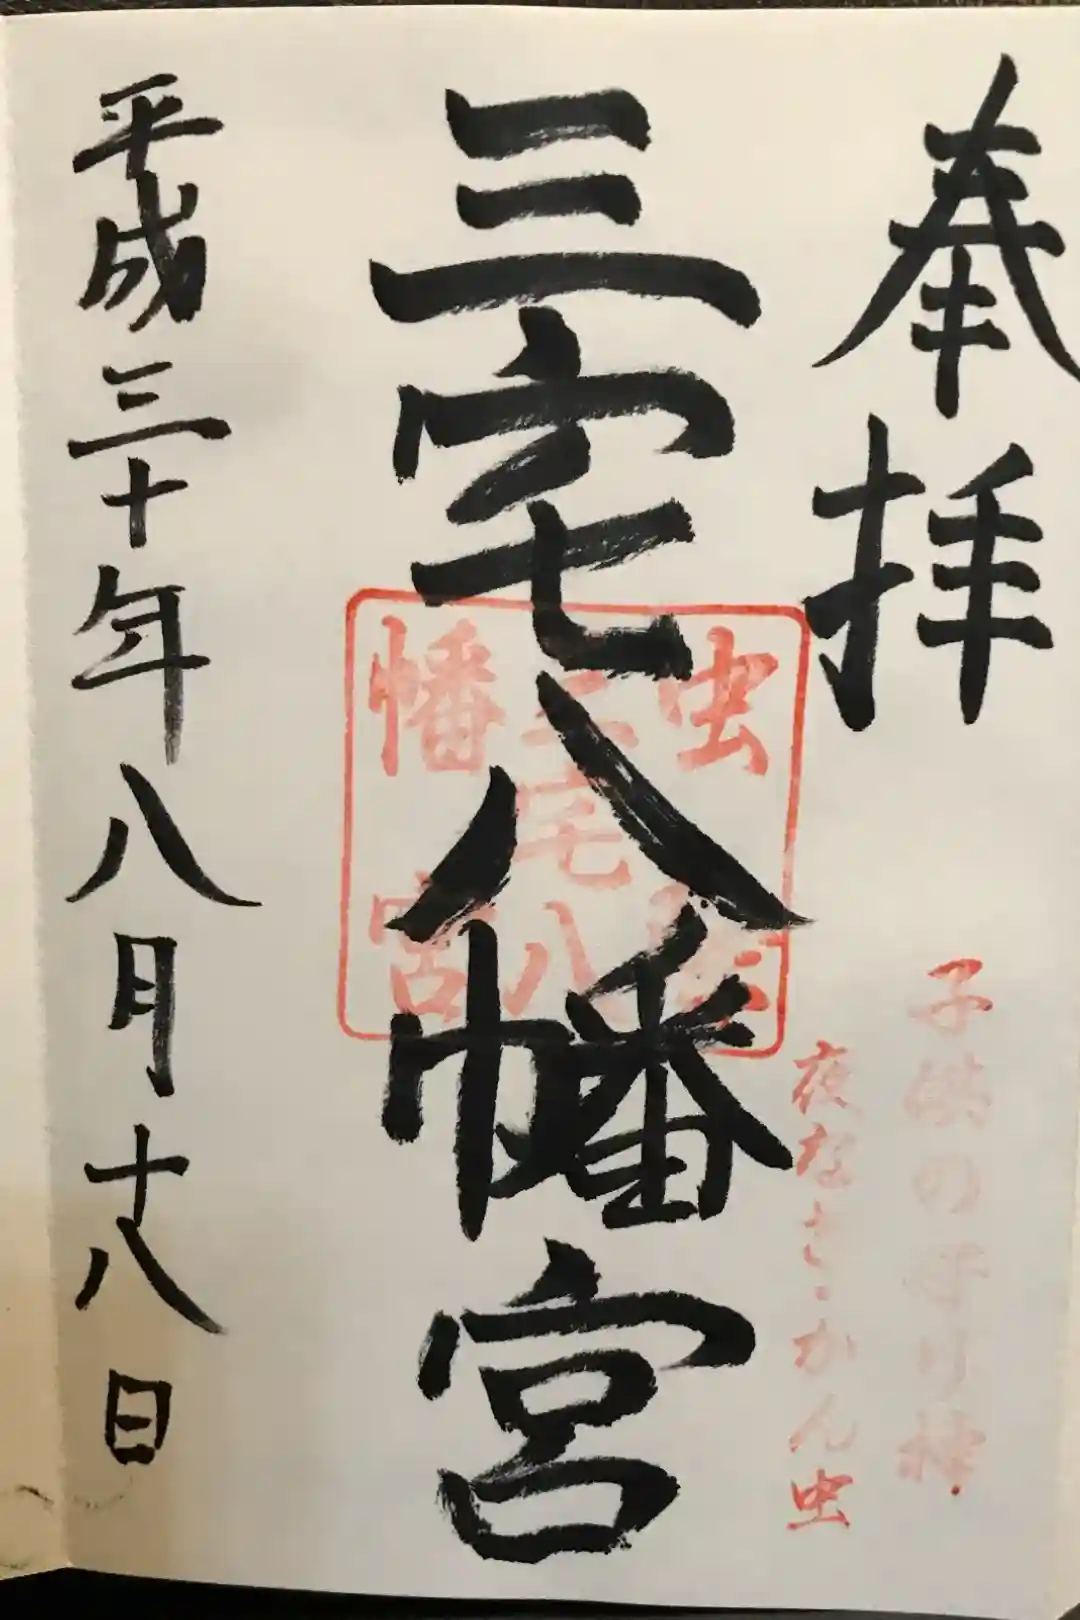 奉拝
子供の守り神
夜なき・かん虫
三宅八幡宮
虫
三宅八
幡宮
平成三十年八月十八日